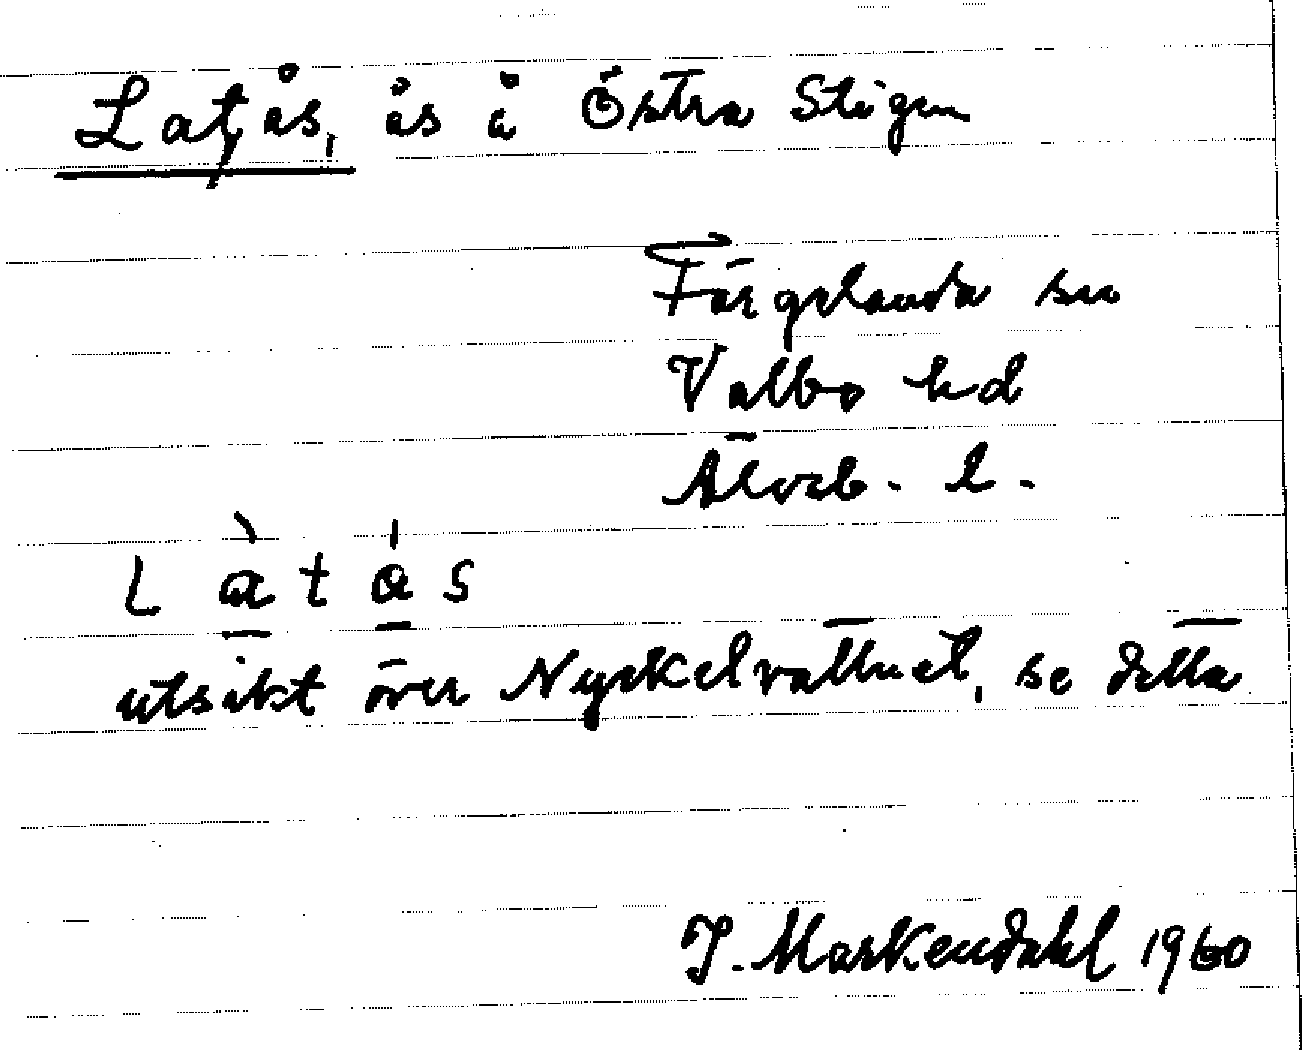 Lat,ås, ås å Östra Stigen
Färgelanda sn
Valbo hd
Älvsb. l.
L à t å s
utsikt över Nyckelvattnet, se detta
J. Markendahl 1960